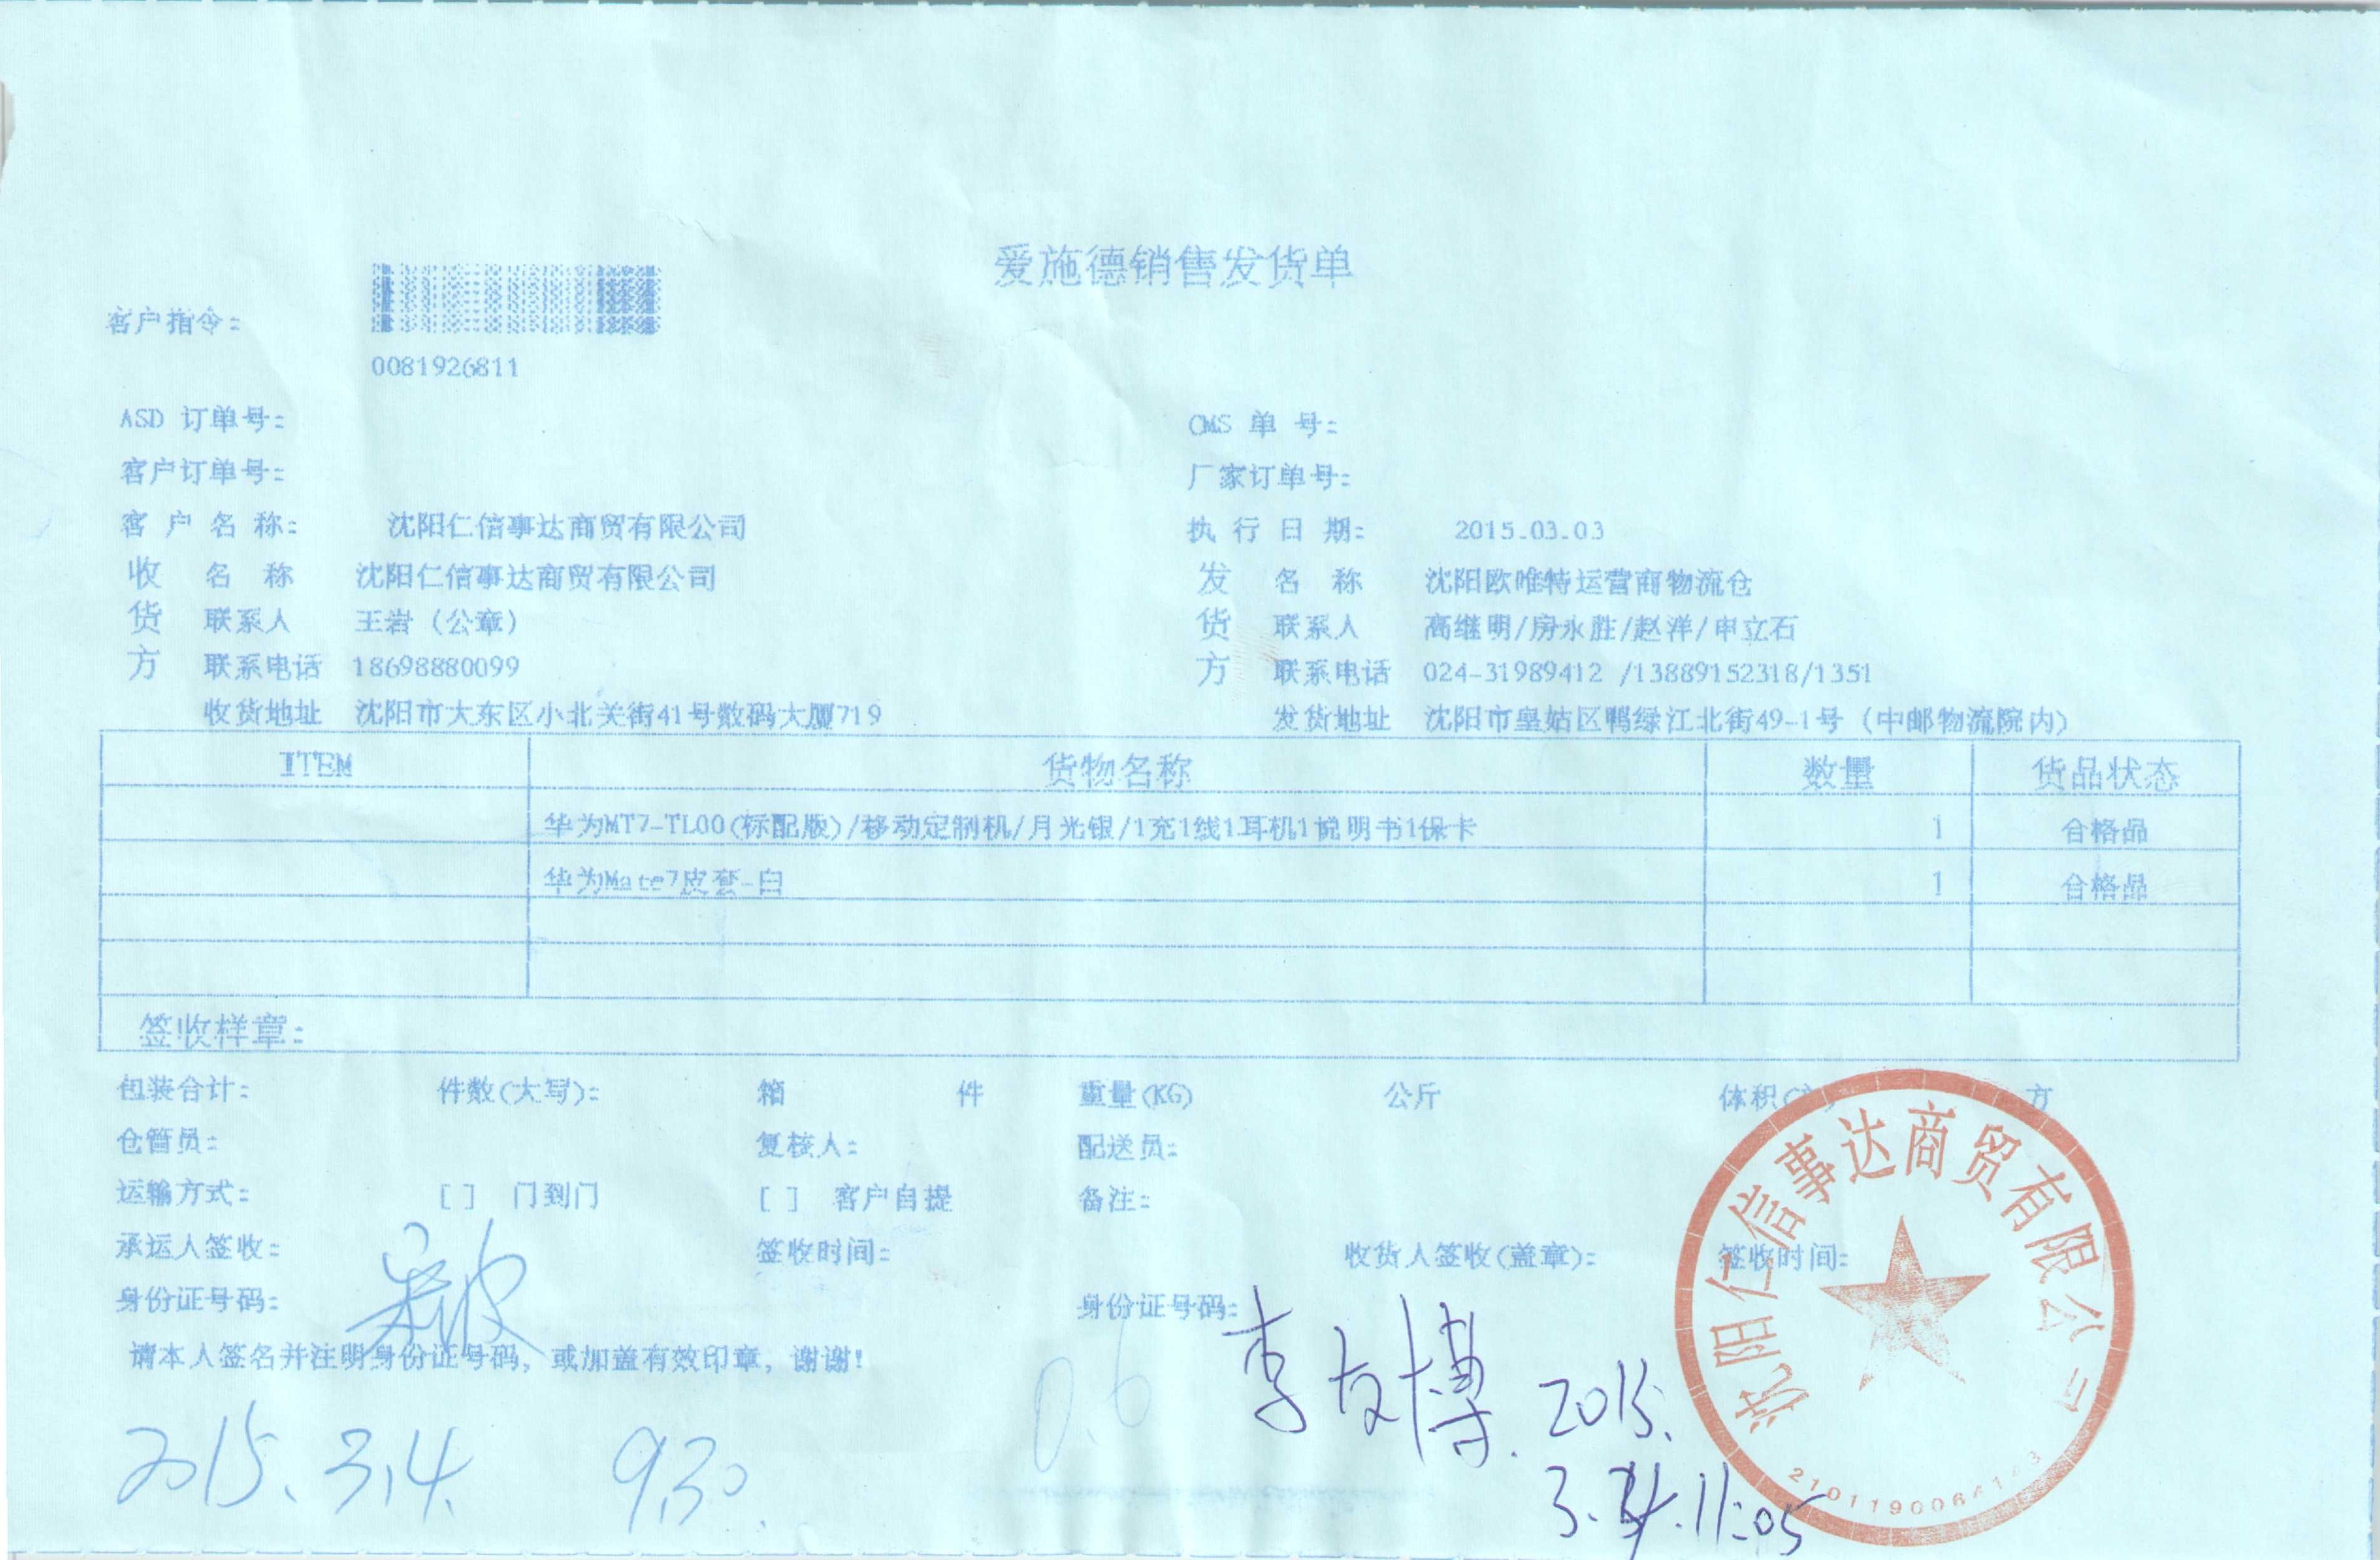 爱施德销售发货单
客户指令:
0081926811
ASD 订单号:
OMS 单 号:
客户订单号:
厂家订单号:
客 户 名 称: 沈阳仁信事达商贸有限公司
执 行 日 期: 2015.03.03
收货方
名 称 沈阳仁信事达商贸有限公司
联系人 王岩(公章)
联系电话 18698880099
收货地址 沈阳市大东区小北关街41号数码大厦719
发货方
名 称 沈阳欧唯特运营商物流仓
联系人 高继明/房永胜/赵洋/申立石
联系电话 024-31989412 /13889152318/1351
发货地址 沈阳市皇姑区鸭绿江北街49-1号(中邮物流院内)
ITEM 货物名称 数量 货品状态
华为MT7-TL00(标配版)/移动定制机/月光银/1充1线1耳机1说明书1保卡 1 合格品
华为Mate7皮套-白 1 合格品
签收样章:
包装合计: 件数(大写): 箱 件 重量(KG) 公斤 体积( 方
仓管员: 复核人: 配送员:
运输方式: [ ] 门到门 [ ] 客户自提 备注:
承运人签收: 签收时间: 收货人签收(盖章): 签收时间:
身份证号码: 身份证号码:
请本人签名并注明身份证号码，或加盖有效印章，谢谢!
2015.3.4. 9.30.
0.6
李友博. 2015.
3.4.11:05
沈阳仁信事达商贸有限公司